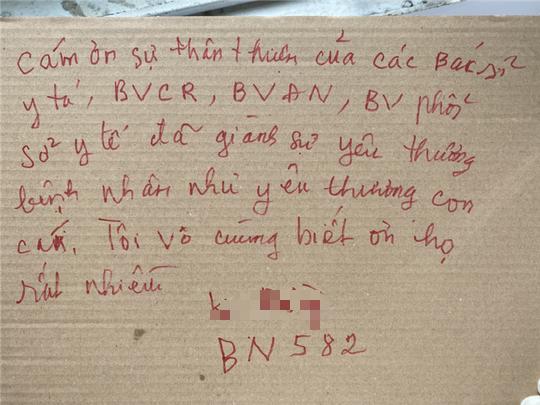 Cám ơn sự thân thiện của các Bác sỹ
y tá, BVCR, BVAN, BV phổi
Sở y tế đã giành sự yêu thương
bệnh nhân như yêu thương con
cái. Tôi vô cùng biết ơn họ
rất nhiều
BN 582